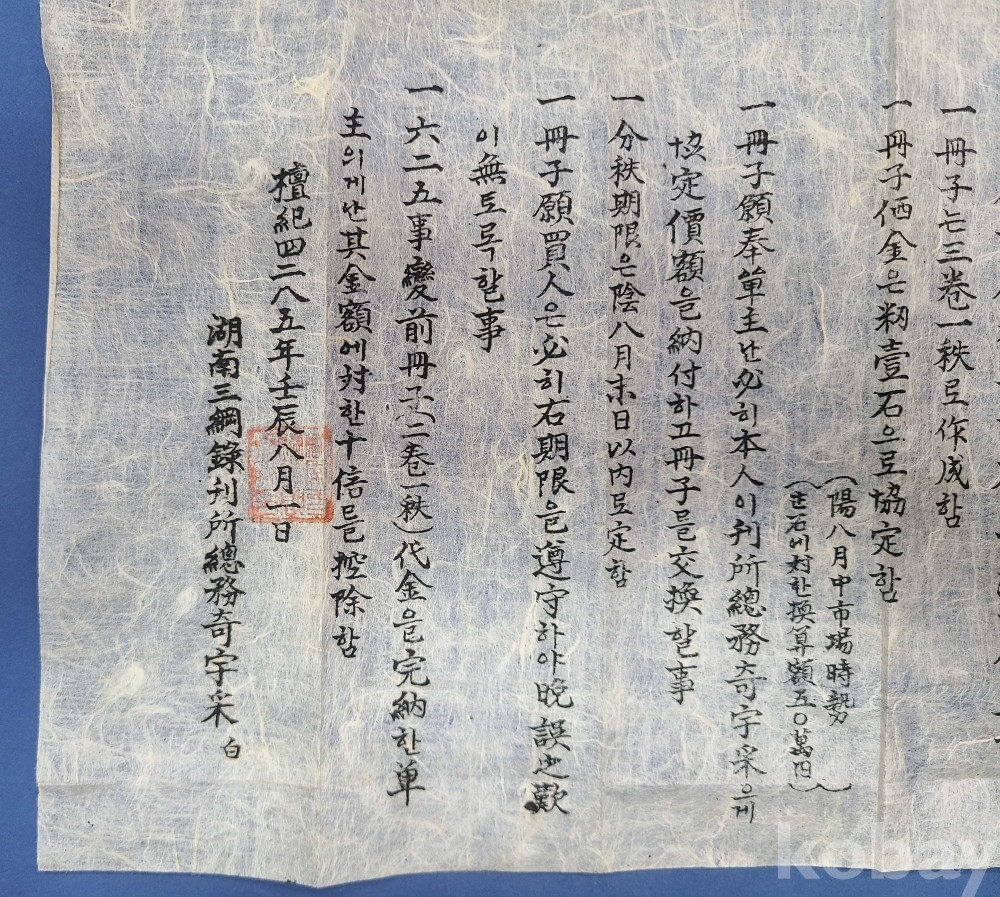 一 冊子는 三卷一秩로 作成함
一 冊子価金은 籾壹石으로 協定함
(陽八月中市場時勢
(壱石에 対한 換算額 五〇萬円)
一 冊子願奉單主난 必히 本人이 刊所總務奇宇采으게
該定價額을 納付하고 冊子를 交換할 事
一 分秩期限은 陰八月末日以内로 定함
一 冊子願買人은 必히 右期限을 遵守하야 晩誤之歎
이 無토록 할 事
一 六二五事變前冊子(二卷一秩)代金을 完納한 单
主의게난 其金額에 対한 十倍를 控除함
檀紀四二八五年壬辰八月一日
湖南三綱錄刊所總務奇宇采 白
kobay